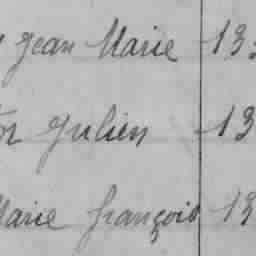 Jean Marie 13
Julien 13
Marie François 13